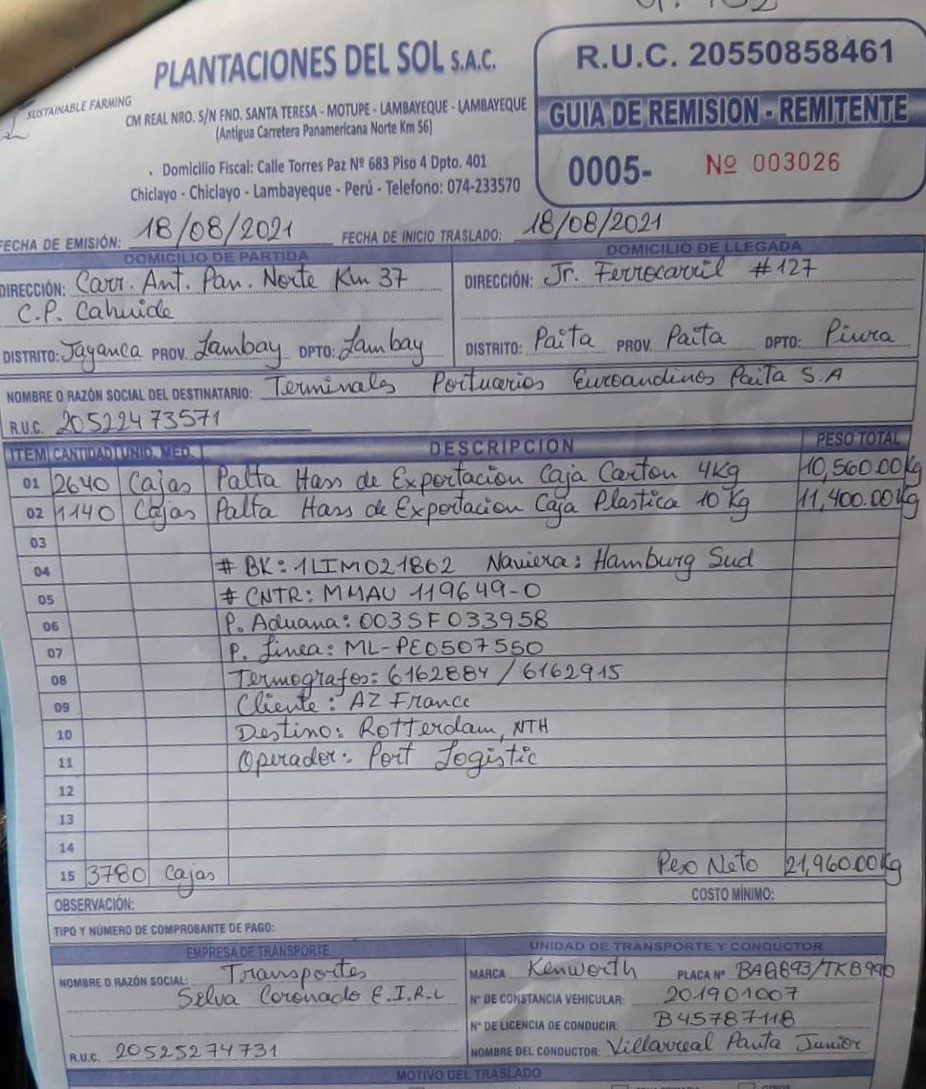 PLANTACIONES DEL SOL S.A.C.
SUSTAINABLE FARMING
CM REAL NRO. S/N FND. SANTA TERESA - MOTUPE - LAMBAYEQUE - LAMBAYEQUE
(Antigua Carretera Panamericana Norte Km 56)
. Domicilio Fiscal: Calle Torres Paz Nº 683 Piso 4 Dpto. 401
Chiclayo - Chiclayo - Lambayeque - Perú - Telefono: 074-233570
R.U.C. 20550858461
GUIA DE REMISION - REMITENTE
0005- Nº 003026
FECHA DE EMISIÓN: 18/08/2021 FECHA DE INICIO TRASLADO: 18/08/2021
DOMICILIO DE PARTIDA
DIRECCIÓN: Carr. Ant. Pan. Norte Km 37
C.P. Cahuide
DISTRITO: Jayanca PROV. Lambay DPTO: Lambay
DOMICILIO DE LLEGADA
DIRECCIÓN: Jr. Ferrocarril #127
DISTRITO: Paita PROV. Paita DPTO: Piura
NOMBRE O RAZÓN SOCIAL DEL DESTINATARIO: Terminales Portuarios Euroandinos Paita S.A
R.U.C. 20522473571
ITEM CANTIDAD UNID. MED. DESCRIPCION PESO TOTAL
01 2640 Cajas Palta Hass de Exportacion Caja Carton 4Kg 10,560.00Kg
02 1140 Cajas Palta Hass de Exportacion Caja Plastica 10 Kg 11,400.00Kg
03
04 # BK: 1LIM021862 Naviera: Hamburg Sud
05 # CNTR: MMAU 119649-0
06 P. Aduana: 003SF033958
07 P. Linea: ML-PE0507550
08 Termografos: 6162884 / 6162915
09 Cliente: AZ France
10 Destino: Rotterdam, NTH
11 Operador: Port Logistic
12
13
14
15 3780 Cajas Peso Neto 21,960.00Kg
OBSERVACIÓN: COSTO MÍNIMO:
TIPO Y NÚMERO DE COMPROBANTE DE PAGO:
EMPRESA DE TRANSPORTE
NOMBRE O RAZÓN SOCIAL: Transportes
Selva Coronado E.I.R.L
R.U.C. 20525274731
UNIDAD DE TRANSPORTE Y CONDUCTOR
MARCA Kenworth PLACA Nº BAG893/TKB990
Nº DE CONSTANCIA VEHICULAR: 201901007
Nº DE LICENCIA DE CONDUCIR: B45787118
NOMBRE DEL CONDUCTOR: Villarreal Panta Junior
MOTIVO DEL TRASLADO